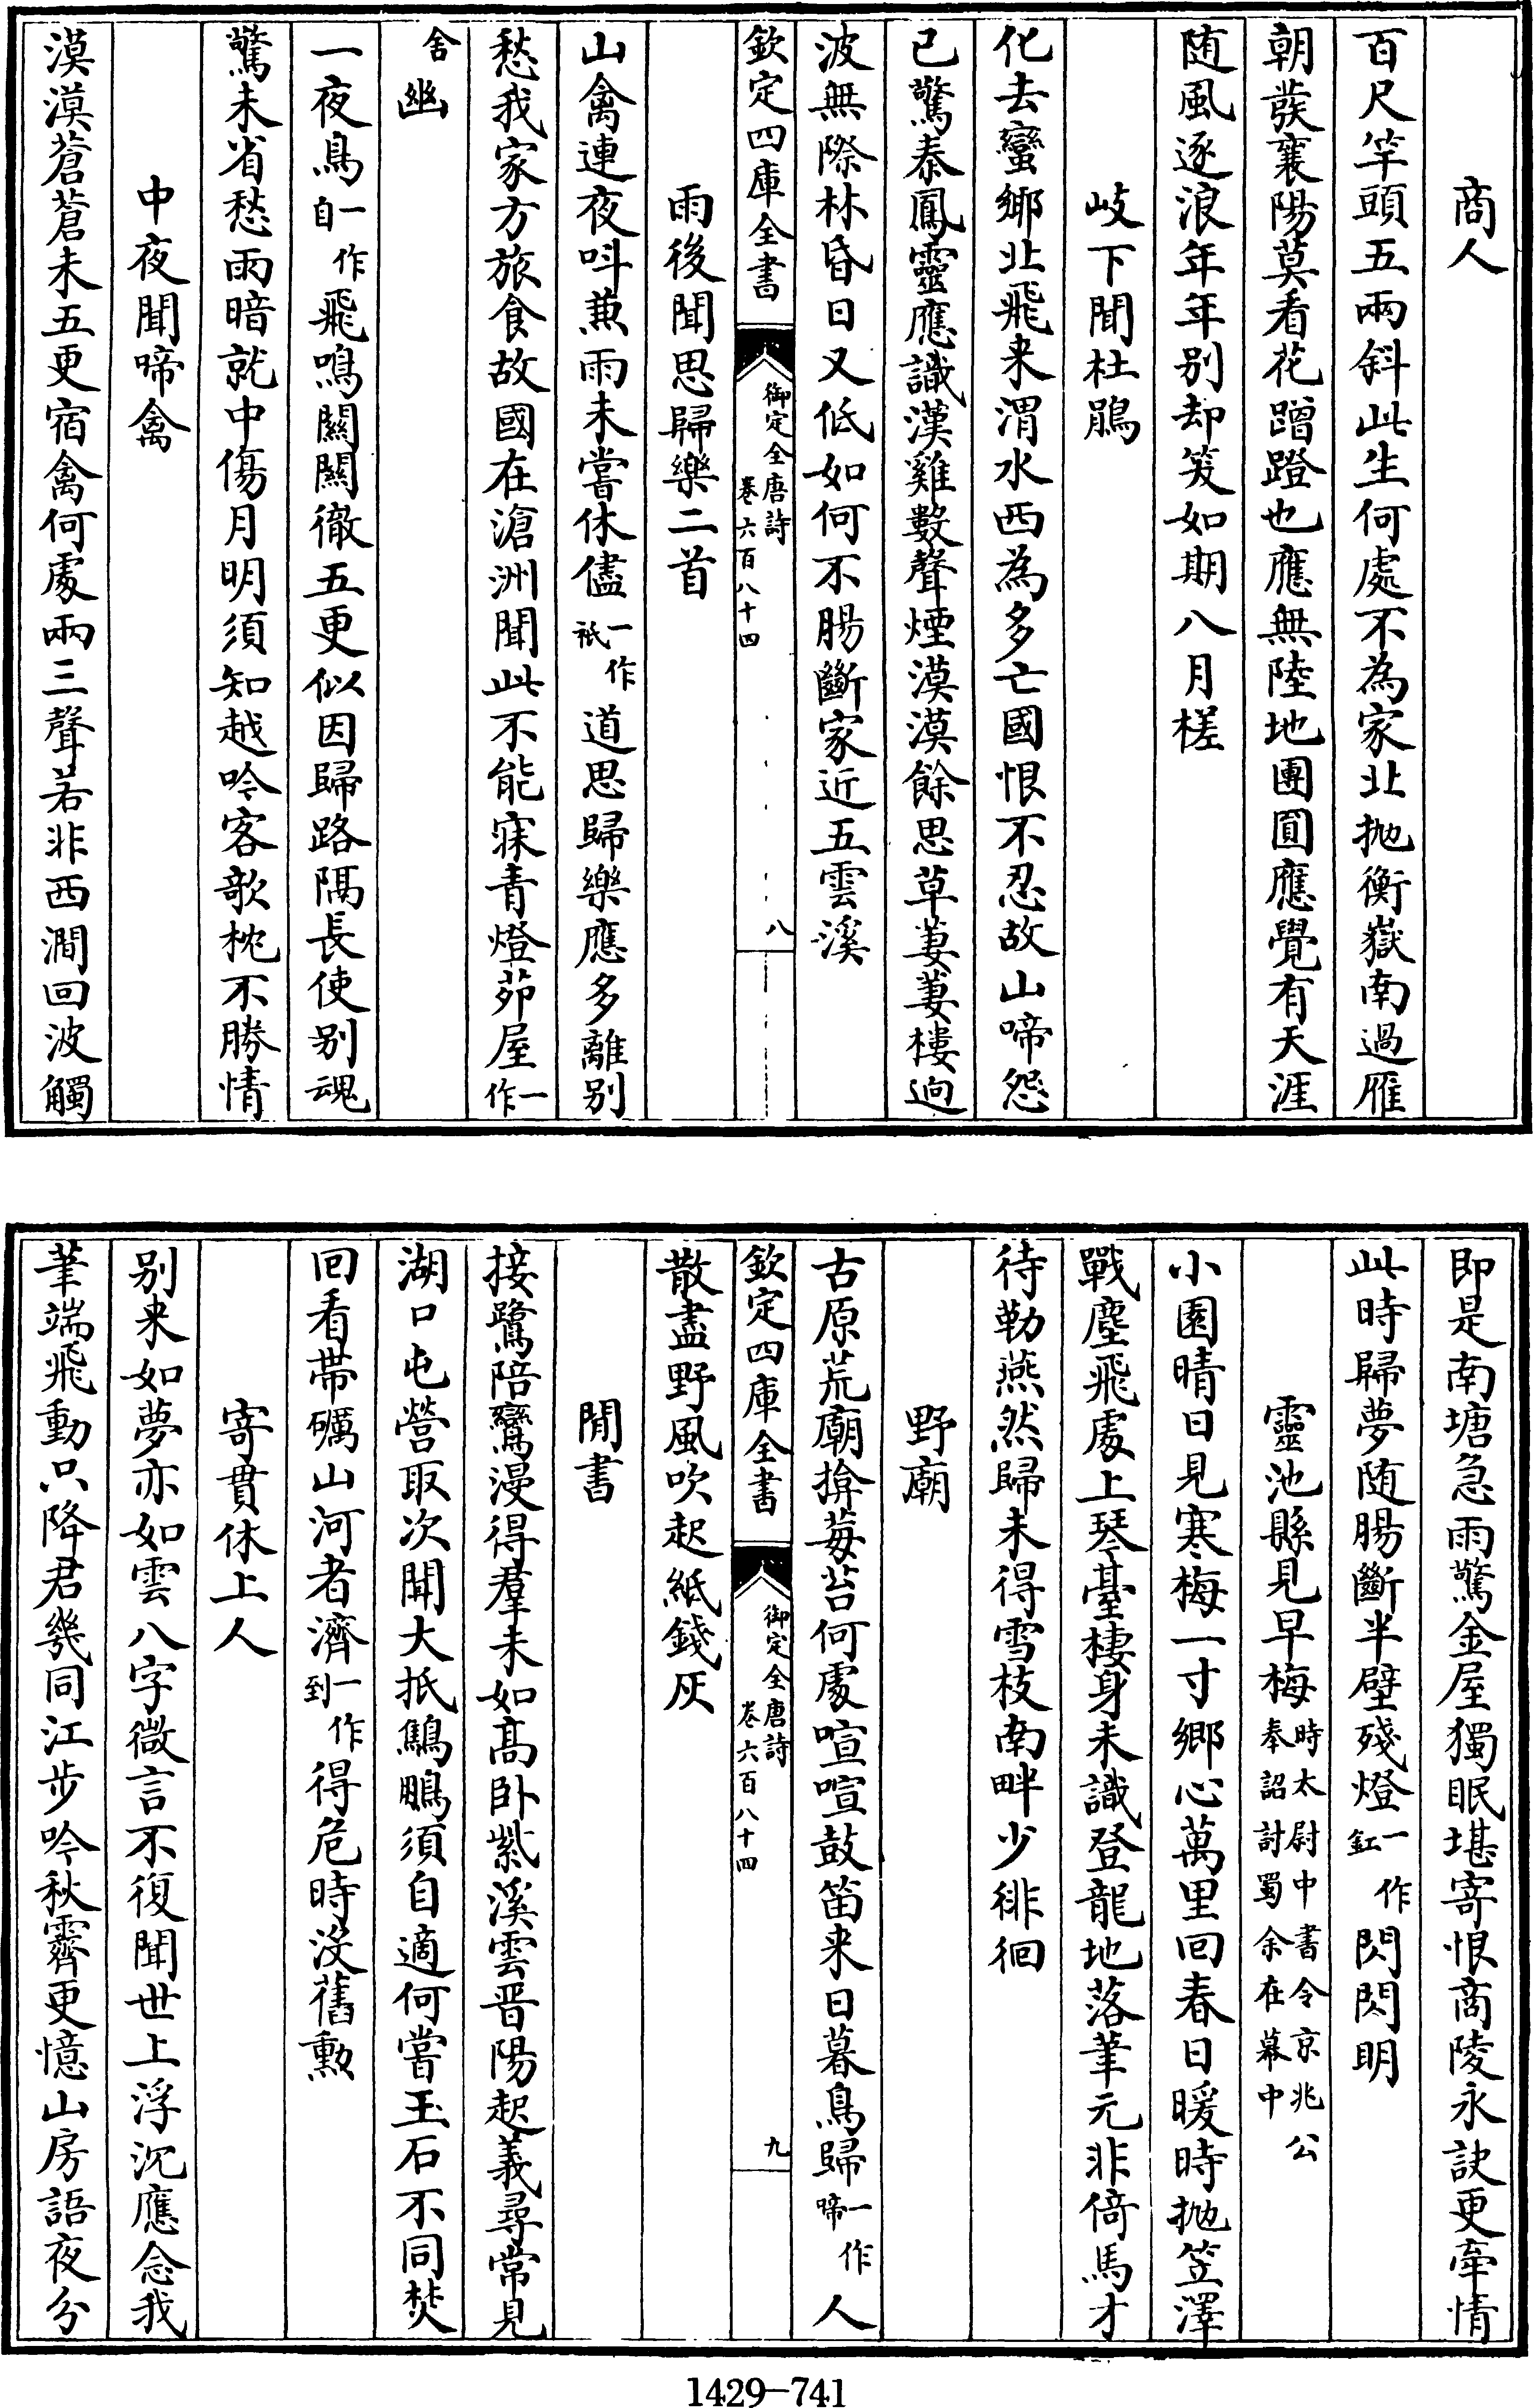 商人
百尺竿頭五兩斜此生何處不為家北抛衡嶽南過雁
朝發襄陽莫看花蹭蹬也應無陸地團圓應覺有天涯
随風逐浪年年别却笑如期八月槎
岐下聞杜鵑
化去蠻鄉北飛来渭水西為多亡國恨不忍故山啼怨
已驚秦鳳靈應識漢雞數聲煙漠漠餘思草萋萋樓迥
波無際林昏日又低如何不腸斷家近五雲溪
欽定四庫全書 御定全唐詩 卷六百八十四 八
雨後聞思歸樂二首
山禽連夜呌兼雨未嘗休儘一作祇道思歸樂應多離别
愁我家方旅食故國在滄洲聞此不能寐青燈茆屋一作
舍幽
一夜鳥一作自飛鳴關關徹五更似因歸路隔長使别魂
驚未省愁雨暗就中傷月明須知越吟客欹枕不勝情
中夜聞啼禽
漠漠蒼蒼未五更宿禽何處兩三聲若非西澗回波觸
即是南塘急雨驚金屋獨眠堪寄恨商陵永訣更牽情
此時歸夢随腸斷半壁殘燈一作釭閃閃明
靈池縣見早梅時太尉中書令京兆公奉詔討蜀余在幕中
小園晴日見寒梅一寸鄉心萬里回春日暖時抛笠澤
戰塵飛處上琴臺棲身未識登龍地落筆元非倚馬才
待勒燕然歸未得雪枝南畔少徘徊
野廟
古原荒廟揜莓苔何處喧喧鼓笛来日暮鳥歸一作啼人
欽定四庫全書 御定全唐詩 卷六百八十四 九
散盡野風吹起紙錢灰
閒書
接鷺陪鸞漫得羣未如高卧紫溪雲晋陽起義尋常見
湖口屯營取次聞大抵鷦鵬須自適何嘗玉石不同焚
回看帶礪山河者濟一作到得危時没舊勲
寄貫休上人
别来如夢亦如雲八字微言不復聞世上浮沉應念我
筆端飛動只降君幾同江步吟秋霽更憶山房語夜分
1429-741